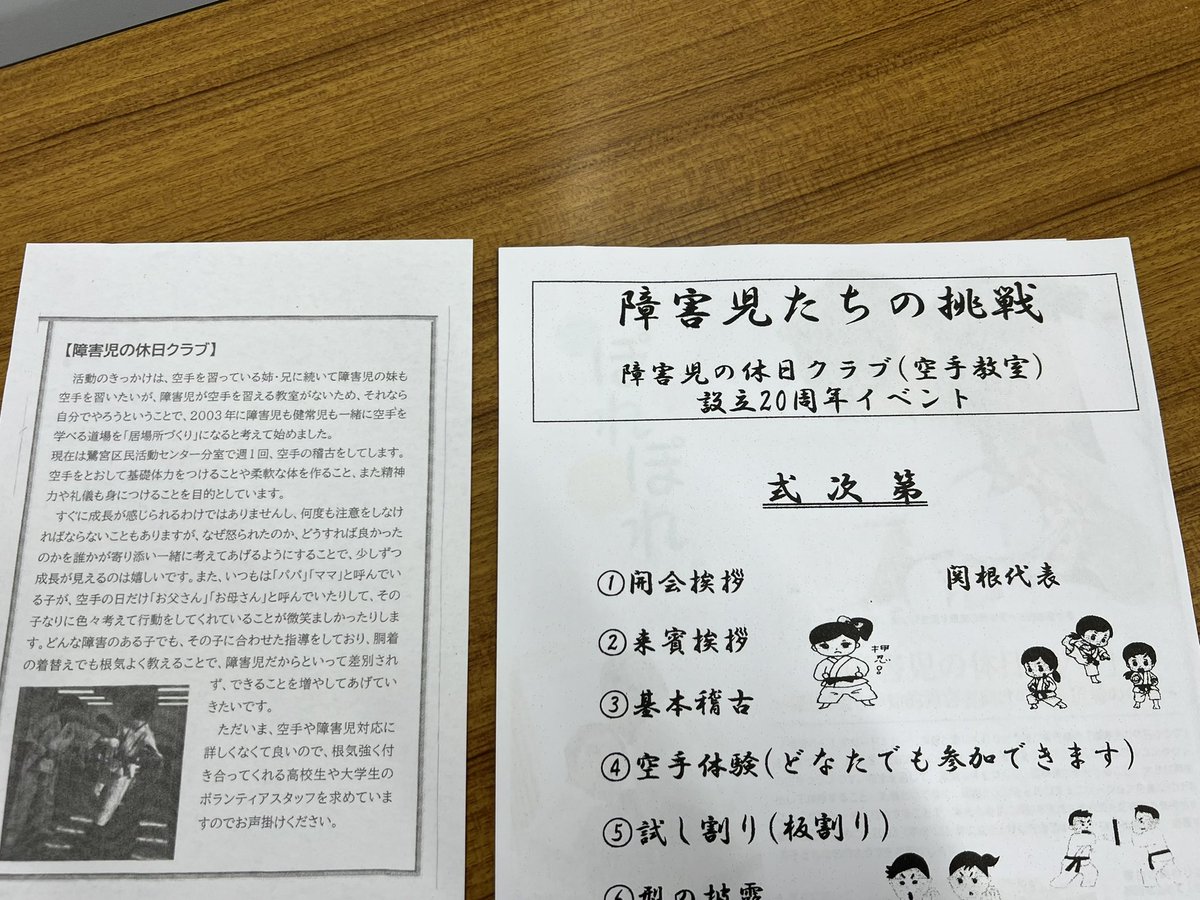 【障害児の休日クラブ】
活動のきっかけは、空手を習っている姉・兄に続いて障害児の妹も
空手を習いたいが、障害児が空手を習える教室がないため、それなら
自分でやろうということで、2003年に障害児も健常児も一緒に空手を
学べる道場を「居場所づくり」になると考えて始めました。
現在は鷺宮区民活動センター分室で週1回、空手の稽古をしてします。
空手をとおして基礎体力をつけることや柔軟な体を作ること、また精神
力や礼儀も身につけることを目的としています。
すぐに成長が感じられるわけではありませんし、何度も注意をしなけ
ればならないこともありますが、なぜ怒られたのか、どうすれば良かった
のかを誰かが寄り添い一緒に考えてあげるようにすることで、少しずつ
成長が見えるのは嬉しいです。また、いつもは「パパ」「ママ」と呼んでい
る子が、空手の日だけ「お父さん」「お母さん」と呼んでいたりして、その
子なりに色々考えて行動をしてくれていることが微笑ましかったりしま
す。どんな障害のある子でも、その子に合わせた指導をしており、胴着
の着替えでも根気よく教えることで、障害児だからといって差別され
ず、できることを増やしてあげてい
きたいです。
ただいま、空手や障害児対応に
詳しくなくて良いので、根気強く付
き合ってくれる高校生や大学生の
ボランティアスタッフを求めていま
すのでお声掛けください。
障害児たちの挑戦
障害児の休日クラブ(空手教室)
設立20周年イベント
式次第
①開会挨拶 関根代表
②来賓挨拶
押忍
③基本稽古
④空手体験(どなたでも参加できます)
⑤試し割り(板割り)
⑥型の披露